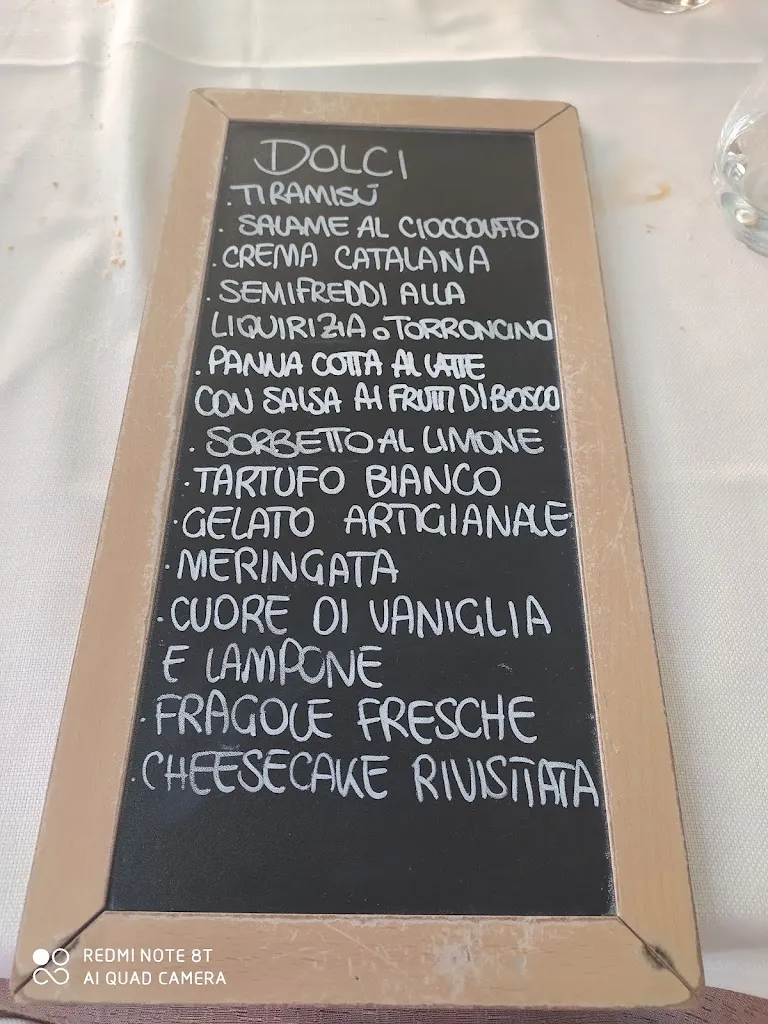 DOLCI
. TIRAMISÙ
. SALAME AL CIOCCOLATO
. CREMA CATALANA
. SEMIFREDDI ALLA
LIQUIRIZIA O TORRONCINO
. PANNA COTTA AL LATTE
CON SALSA AI FRUTTI DI BOSCO
. SORBETTO AL LIMONE
. TARTUFO BIANCO
. GELATO ARTIGIANALE
. MERINGATA
. CUORE DI VANIGLIA
E LAMPONE
. FRAGOLE FRESCHE
. CHEESECAKE RIVISITATA
REDMI NOTE 8T
AI QUAD CAMERA